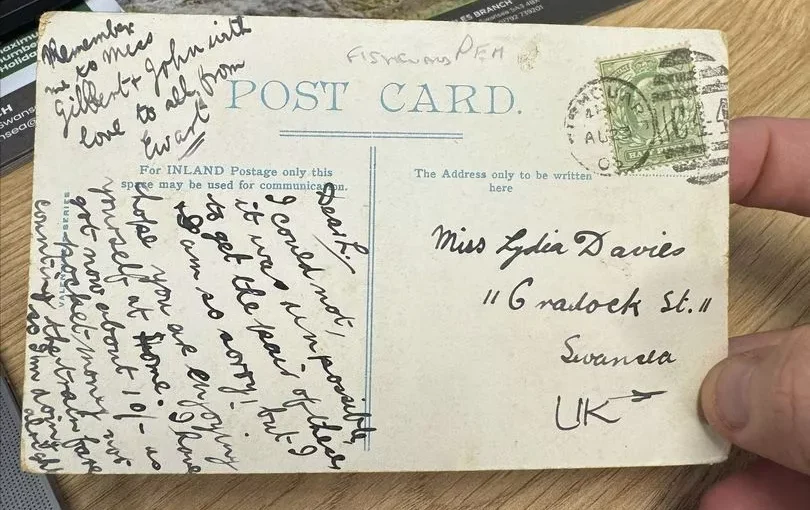 Remember
me to Miss
Gilbert & John with
love to all from
Ewart
FISHGUARD PEM
POST CARD.
For INLAND Postage only this
space may be used for communication.
The Address only to be written
here
Dear L.
I could not,
it was unpossible
to get the pair of these
I am so sorry! but I
hope you are enjoying
yourself at home. I have
got now about 10/- as
pocket money not
counting the train fare
so I'm doing
alright
Miss Lydia Davies
"6 radock St."
Swansea
UK
SERIES
AU